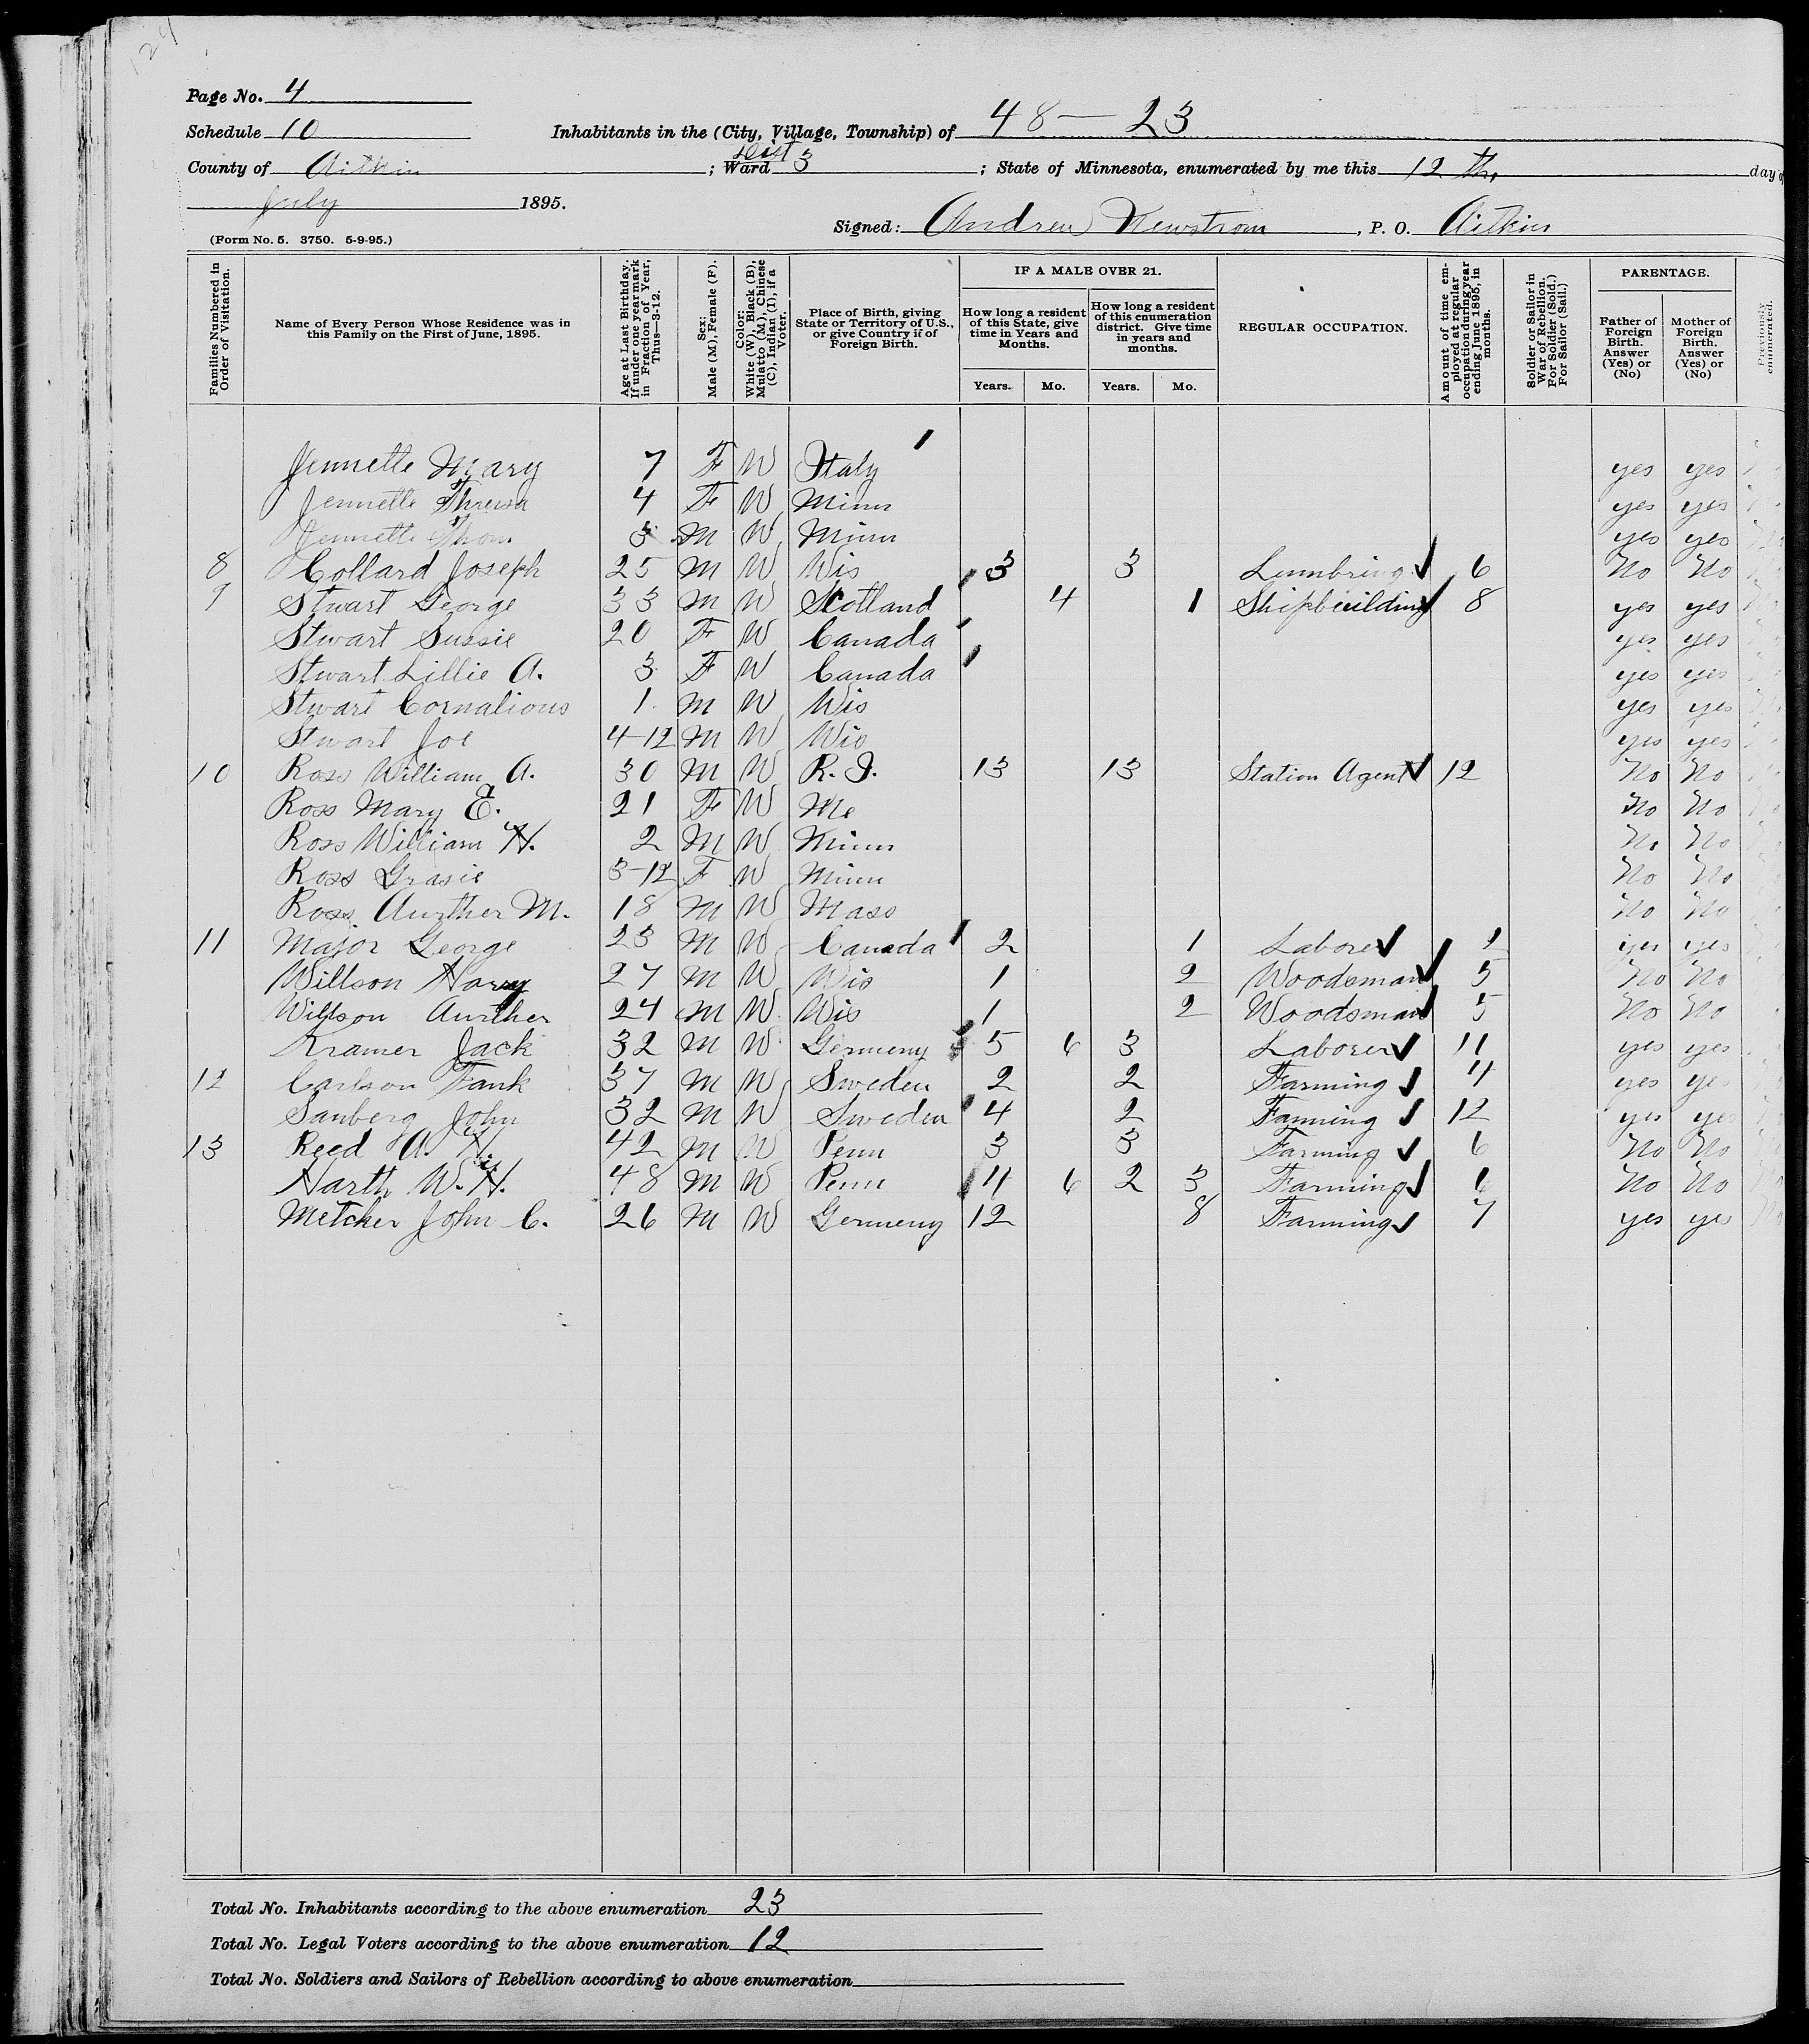 Page No. 4
Schedule 10 Inhabitants in the (City, Village, Township) of 48 — 23
County of Aitkin ; Ward Dist 3 ; State of Minnesota, enumerated by me this 12 th. day of
July 1895.
Signed: Andrew Newstrom, P. O. Aitkin
(Form No. 5. 3750. 5-9-95.)
Families Numbered in Order of Visitation.
Name of Every Person Whose Residence was in this Family on the First of June, 1895.
Age at Last Birthday. If under one year mark in Fraction of Year, Thus—3-12.
Sex: Male (M), Female (F).
Color: White (W), Black (B), Mulatto (M), Chinese (C), Indian (I), if a Voter.
Place of Birth, giving State or Territory of U.S., or give Country if of Foreign Birth.
IF A MALE OVER 21.
How long a resident of this State, give time in Years and Months.
How long a resident of this enumeration district. Give time in years and months.
Years. Mo. Years. Mo.
REGULAR OCCUPATION.
Amount of time employed at regular occupation during year ending June 1895, in months.
Soldier or Sailor in War of Rebellion. For Soldier (Sold.) For Sailor (Sail.)
PARENTAGE.
Father of Foreign Birth. Answer (Yes) or (No)
Mother of Foreign Birth. Answer (Yes) or (No)
Previously enumerated.
Jennette Mary 7 F W Italy yes yes
Jennette Thresa 4 F W Minn yes yes
Jennette Thom 3 M W Minn yes yes
8 Collard Joseph 25 M W Wis 3 3 Lumbring 6 No No
9 Stwart George 33 M W Scotland 4 1 Shipbuilding 8 yes yes
Stwart Sussie 20 F W Canada yes yes
Stwart Lillie A. 3 F W Canada yes yes
Stwart Cornalious 1 M W Wis yes yes
Stwart Joe 4-12 M W Wis yes yes
10 Ross William A. 30 M W R. I. 13 13 Station Agent 12 No No
Ross Mary E. 21 F W Me No No
Ross William H. 2 M W Minn No No
Ross Grasie 3-12 F W Minn No No
Ross Aurther M. 18 M W Mass No No
11 Major George 23 M W Canada 2 1 Laborer yes yes
Willson Harry 27 M W Wis 1 2 Woodsman 5 No No
Willson Aurther 24 M W Wis 1 2 Woodsman 5 No No
Kramer Jack 32 M W Germeny 5 6 3 Laborer 11 yes yes
12 Carlson Fank 37 M W Sweden 2 2 Farming 11 yes yes
Sanberg John 32 M W Sweden 4 2 Farming 12 yes yes
13 Reed A. H. 42 M W Penn 3 3 Farming 6 No No
Harth W. H. 48 M W Penn 11 6 2 3 Farming 6 No No
Metcher John C. 26 M W Germeny 12 8 Farming 7 yes yes
Total No. Inhabitants according to the above enumeration 23
Total No. Legal Voters according to the above enumeration 12
Total No. Soldiers and Sailors of Rebellion according to above enumeration